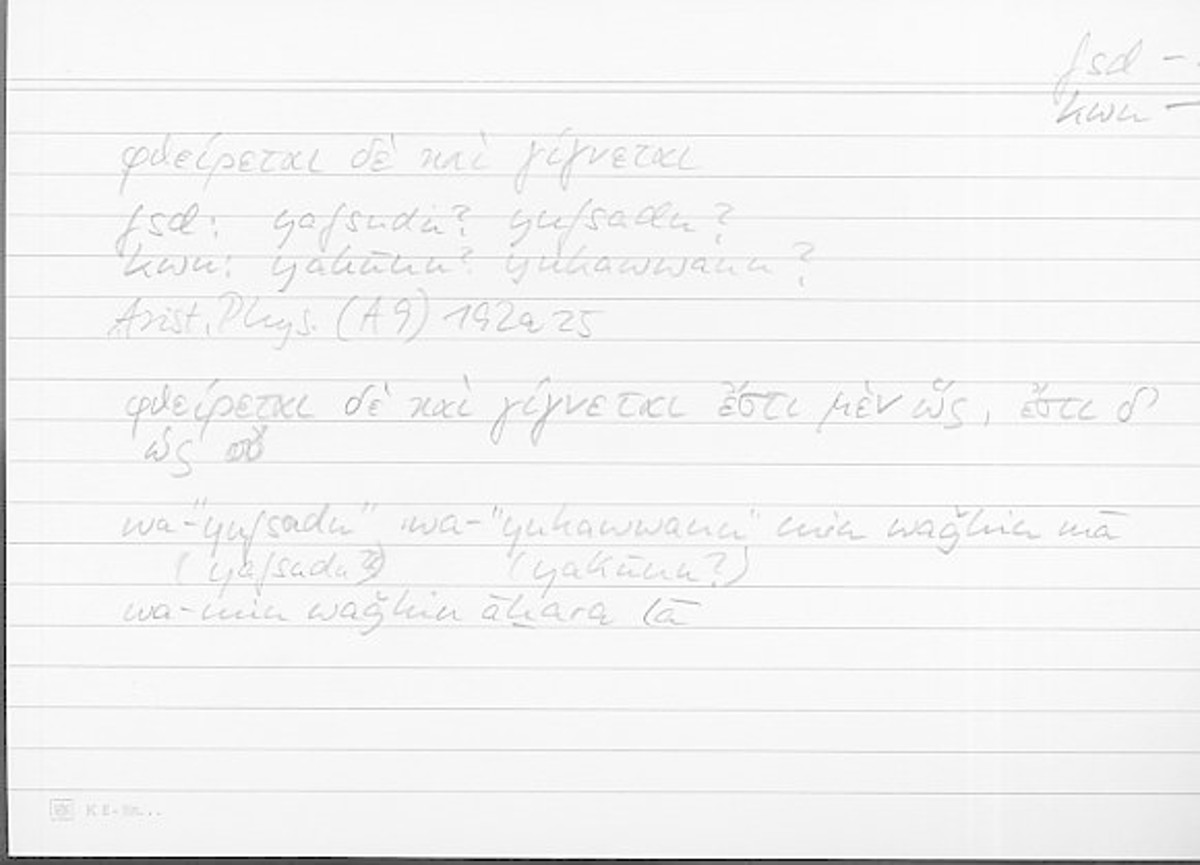 fsd –
kwn –
φθείρεται δὲ καὶ γίγνεται
fsd: yafsudu? yufsadu?
kwn: yakūnu? yukawwanu?
Arist. Phys. (A 9) 192a25
φθείρεται δὲ καὶ γίγνεται ἔστι μὲν ὥς, ἔστι δ'
ὡς οὔ
wa-"yufsadu" wa-"yukawwanu" min waǧhin mā
(yafsudu?) (yakūnu?)
wa-min waǧhin āḫara lā